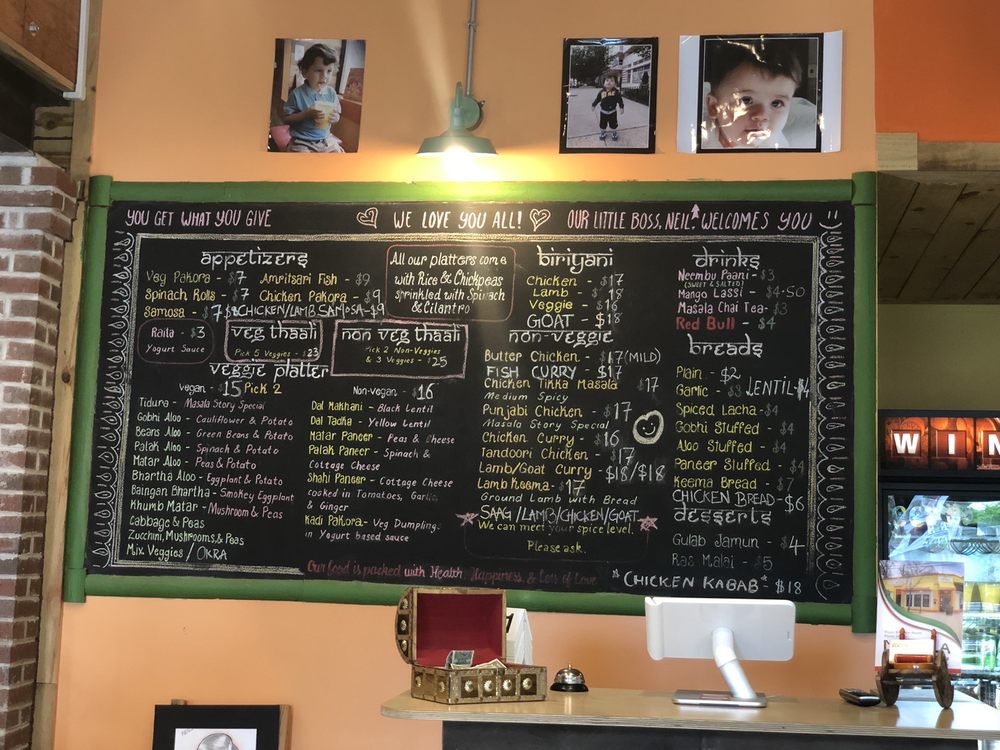 YOU GET WHAT YOU GIVE
WE LOVE YOU ALL!
OUR LITTLE BOSS, NEIL, WELCOMES YOU
appetizers
Veg Pakora - $7
Amritsari Fish - $9
Spinach Rolls - $7
Chicken Pakora - $9
Samosa - $7
CHICKEN/LAMB SAMOSA-$9
Raita - $3
Yogurt Sauce
veg thaali
Pick 5 Veggies - $23
non veg thaali
Pick 2 Non-Veggies
& 3 Veggies - $25
All our platters come
with Rice & Chickpeas
sprinkled with Spinach
& Cilantro
veggie platter
vegan - $15 Pick 2
Tidura - Masala Story Special
Gobhi Aloo - Cauliflower & Potato
Beans Aloo - Green Beans & Potato
Palak Aloo - Spinach & Potato
Matar Aloo - Peas & Potato
Bhartha Aloo - Eggplant & Potato
Baingan Bhartha - Smokey Eggplant
Khumb Matar - Mushroom & Peas
Cabbage & Peas
Zucchini, Mushrooms & Peas
Mix Veggies / OKRA
Non-vegan - $16
Dal Makhani - Black Lentil
Dal Tadka - Yellow Lentil
Matar Paneer - Peas & Cheese
Palak Paneer - Spinach &
Cottage Cheese
Shahi Paneer - Cottage Cheese
cooked in Tomatoes, Garlic,
& Ginger
Kadi Pakora - Veg Dumplings
in Yogurt based sauce
Biriyani
Chicken - $17
Lamb - $18
Veggie - $16
GOAT - $18
non-veggie
Butter Chicken - $17 (MILD)
FISH CURRY - $17
Chicken Tikka Masala $17
Medium Spicy
Punjabi Chicken - $17
Masala Story Special
Chicken Curry - $16
Tandoori Chicken - $17
Lamb/Goat Curry - $18/$18
Lamb Keema - $17
Ground Lamb with Bread
SAAG/LAMB/CHICKEN/GOAT
We can meet your spice level.
Please ask.
drinks
Neembu Paani - $3
(SWEET & SALTED)
Mango Lassi - $4.50
Masala Chai Tea - $3
Red Bull - $4
breads
Plain - $2
Garlic - $3
LENTIL-$4
Spiced Lacha - $4
Gobhi Stuffed - $4
Aloo Stuffed - $4
Paneer Stuffed - $4
Keema Bread - $7
CHICKEN BREAD - $6
desserts
Gulab Jamun - $4
Ras Malai - $5
*CHICKEN KABAB* - $18
Our food is packed with Health Happiness & Lots of Love
WIN